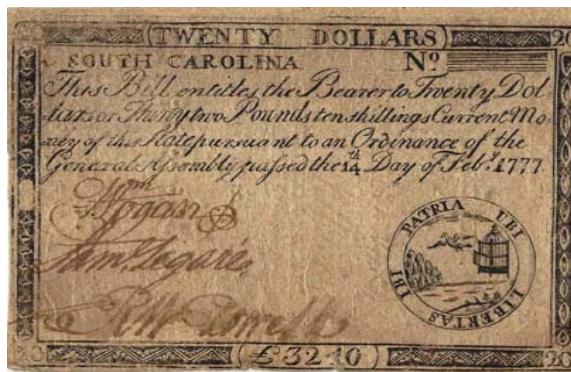 20 (TWENTY DOLLARS) 20
SOUTH CAROLINA No
This Bill entitles the Bearer to Twenty Dol-
lars or Thirty two Pounds ten shillings Current Mo-
ney of this State pursuant to an Ordinance of the
General Assembly passed the 14th Day of Feby. 1777
Wm Logan
Saml. Legaré
PATRIA UBI LIBERTAS IBI
20 (£32·10) 20